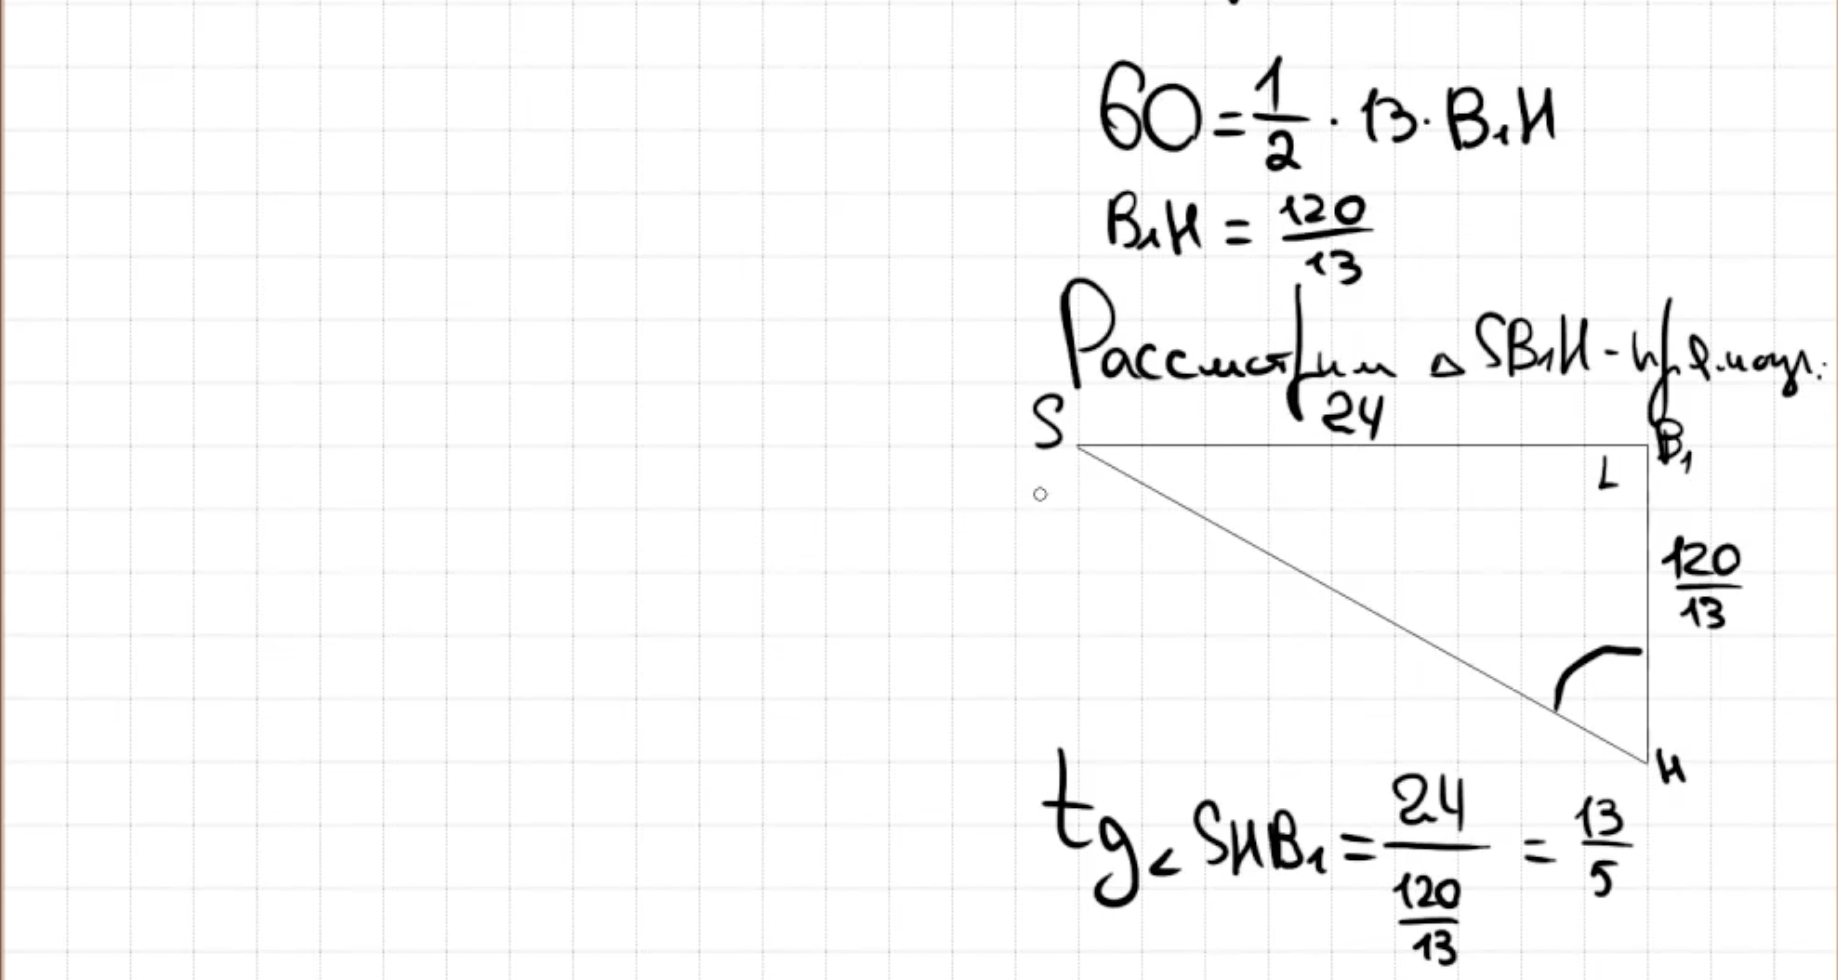 60 = 1/2 · 13 · B₁H
B₁H = 120/13
Рассмотрим △ SB₁H - прямоуг.:
S 24 B₁
120/13
H
tg < SHB₁ = 24/(120/13) = 13/5